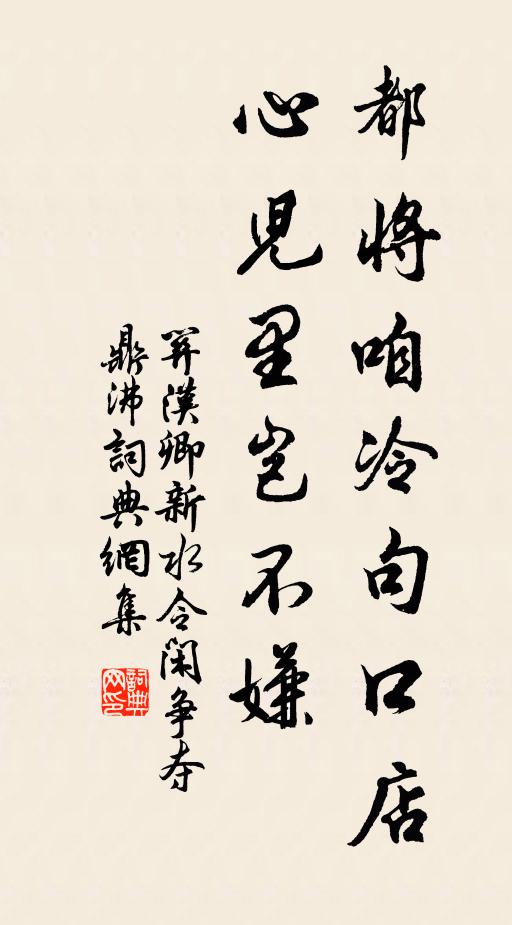 都將咱冷句口店
心兒里豈不嫌
關漢卿新水令閑争夺
鼎沸詞典網集
詞典网印